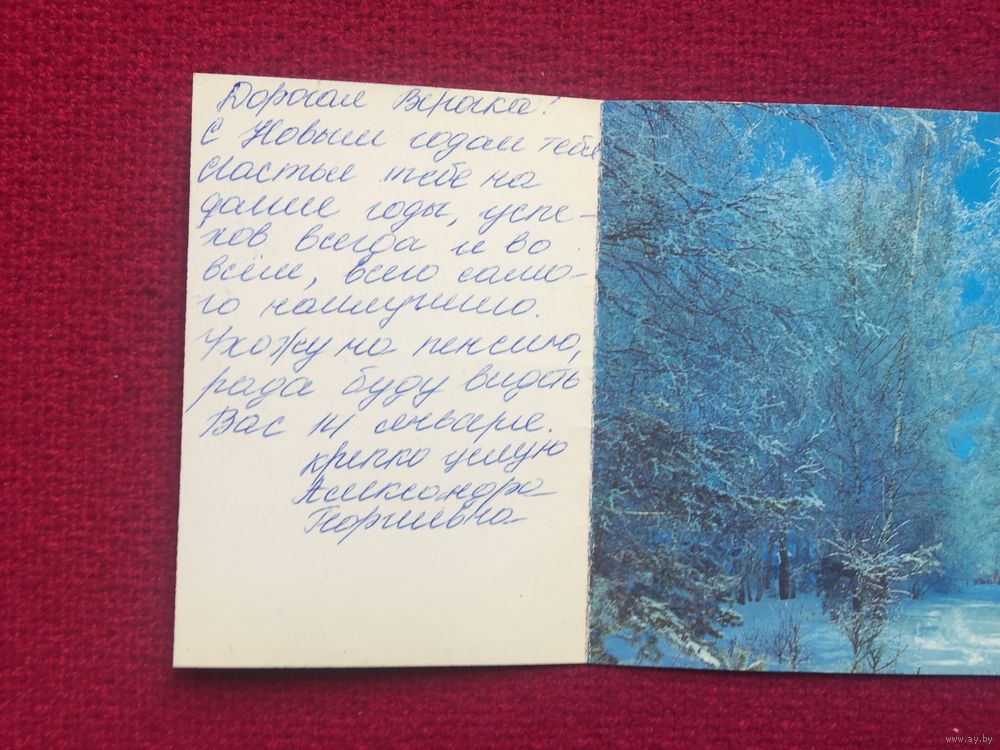 Дорогая Верочка!
С Новым годом тебя
Счастья тебе на
долгие годы, успе-
хов всегда и во
всём, всего само-
го наилучшего.
Ухожу на пенсию,
рада буду видеть
Вас 14 января.
крепко целую
Александра
Георгиевна
www.ay.by